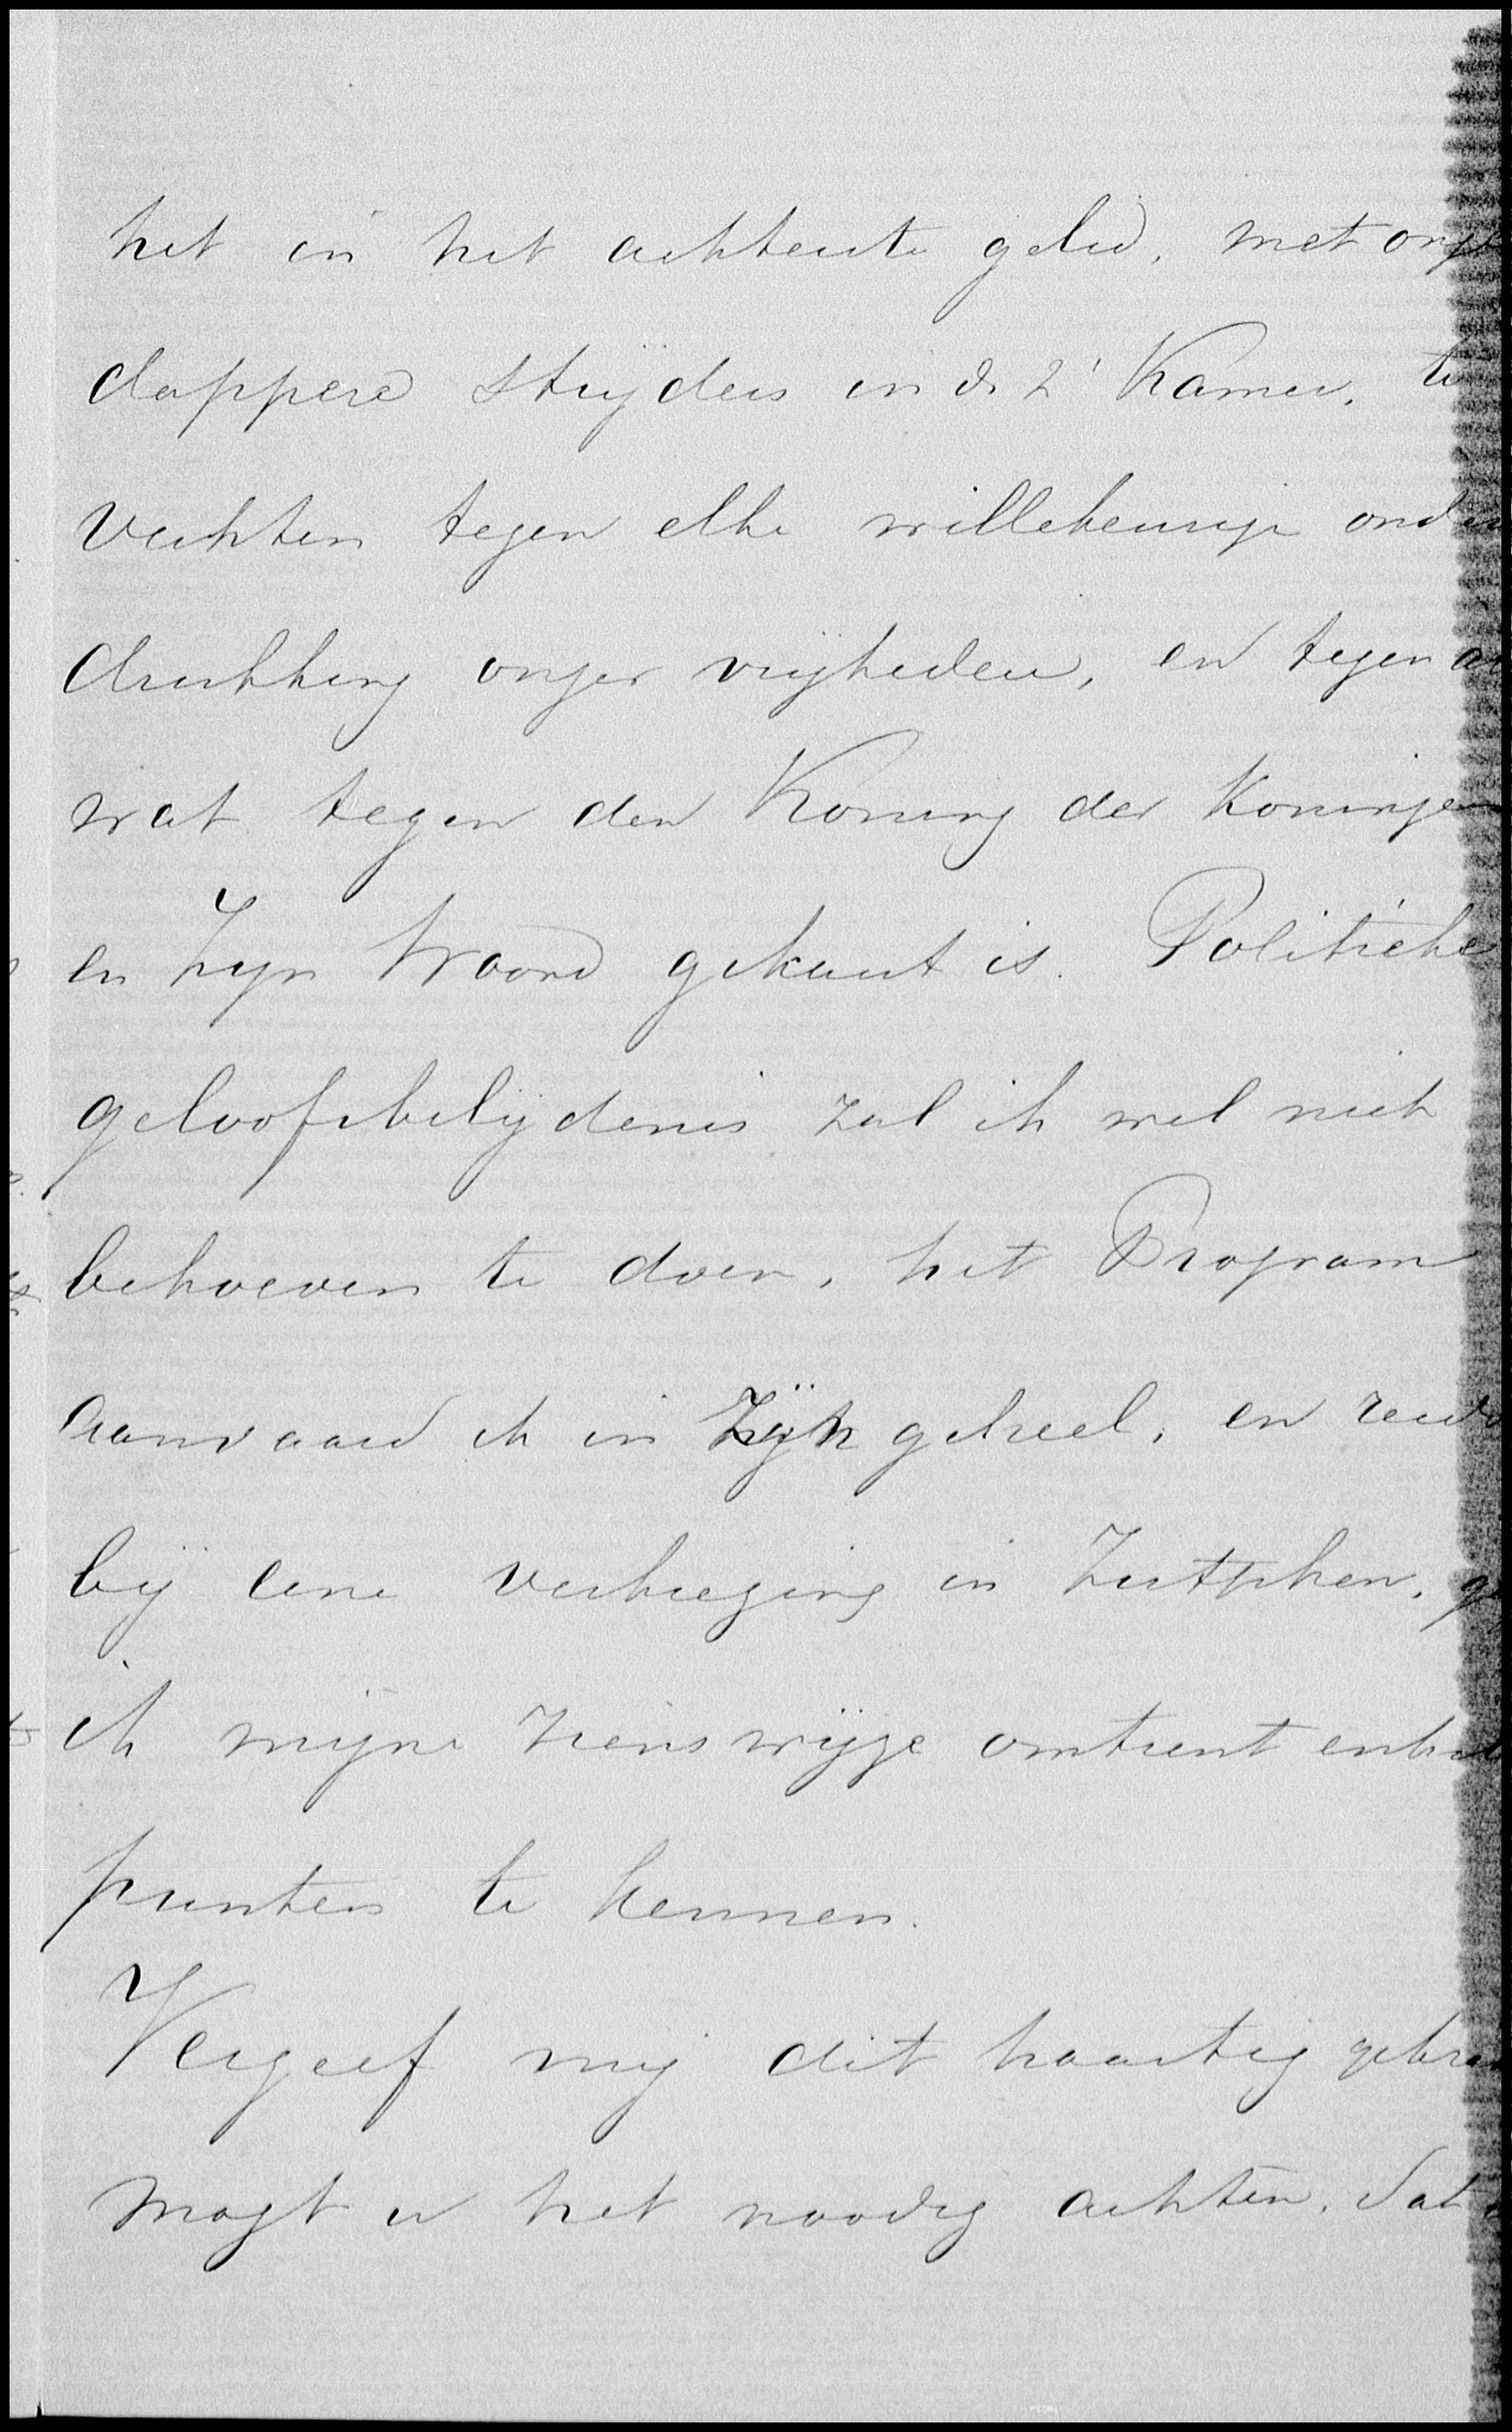 het in het achterste gelid, met onze
dappere strijders in de 2e Kamer, te
vechten tegen elke willekeurige onder
drukking onzer vrijheden, en tegen al
wat tegen den Koning der Koningen
en Zijn Woord gekant is. Politieke
geloofsbelijdenis zal ik wel niet
behoeven te doen, het Program
aanvaard ik in zijn geheel, en reeds
bij eene verkiezing in Zutphen, g
ik mijne zienswijze omtrent enkele
punten te kennen.
Vergeef mij dit haastig
mogt u het noodig achten, dat